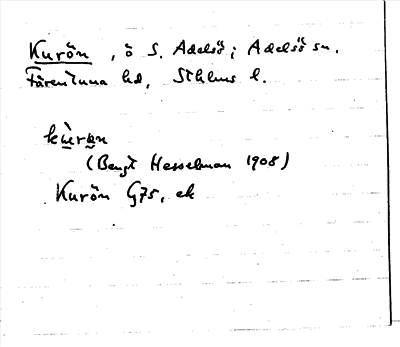 Kurön, ö S. Adelsö; Adelsö sn.
Färentuna hd, Sthlms l.
kùrøn
(Bengt Hesselman 1908)
Kurön G75, ek